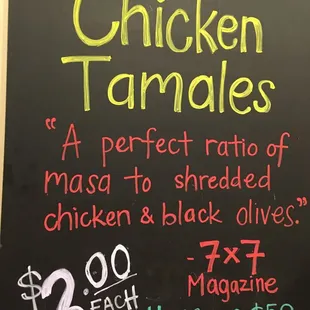 Chicken
Tamales
"A perfect ratio of
masa to shredded
chicken & black olives."
- 7x7
Magazine
$2.00
EACH